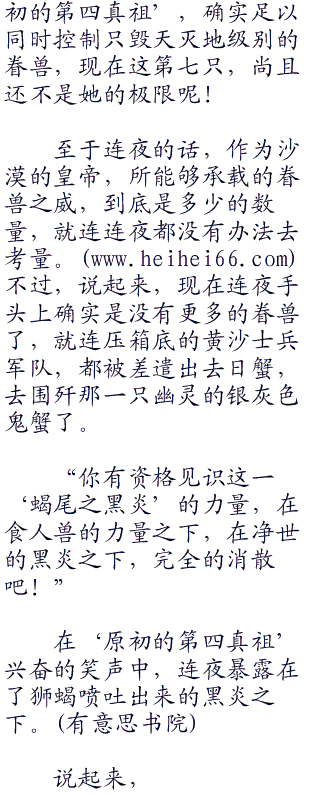 初的第四真祖’，确实足以
同时控制只毁天灭地级别的
眷兽，现在这第七只，尚且
还不是她的极限呢！
至于连夜的话，作为沙
漠的皇帝，所能够承载的眷
兽之威，到底是多少的数
量，就连连夜都没有办法去
考量。(www.heihei66.com)
不过，说起来，现在连夜手
头上确实是没有更多的眷兽
了，就连压箱底的黄沙士兵
军队，都被差遣出去日蟹，
去围歼那一只幽灵的银灰色
鬼蟹了。
“你有资格见识这一
‘蝎尾之黑炎’的力量，在
食人兽的力量之下，在净世
的黑炎之下，完全的消散
吧！”
在‘原初的第四真祖’
兴奋的笑声中，连夜暴露在
了狮蝎喷吐出来的黑炎之
下。(有意思书院)
说起来，